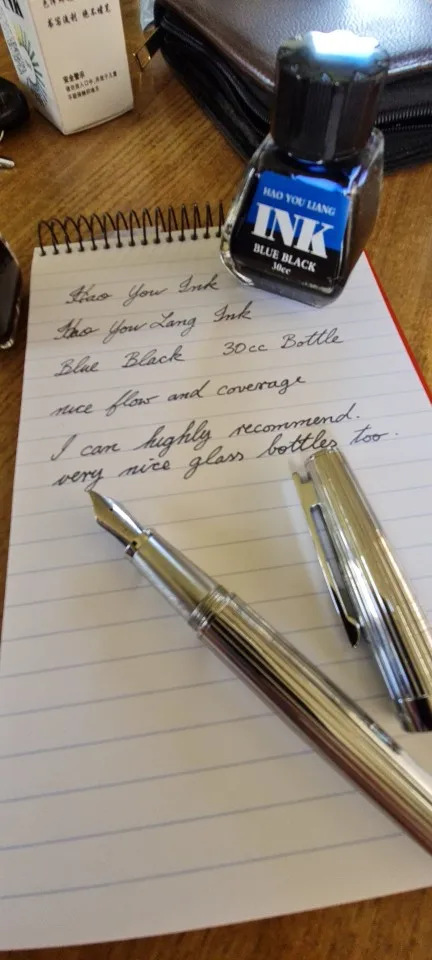 安全警示
HAO YOU LIANG
INK
BLUE BLACK
30cc
Hao You Ink
Hao You Lang Ink
Blue Black 30cc Bottle
nice flow and coverage
I can highly recommend.
very nice glass bottles too.